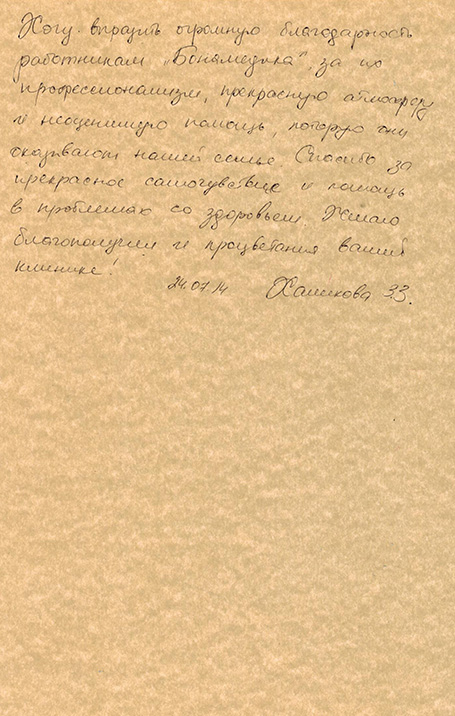 Хочу выразить огромную благодарность
работникам „Бонамедика“, за их
профессионализм, прекрасную атмосферу
и неоценимую помощь, которую они
оказывают нашей семье. Спасибо за
прекрасное самочувствие и помощь
в проблемах со здоровьем. Желаю
благополучия и процветания вашей
клинике!
24.07.14 Халикова З.З.